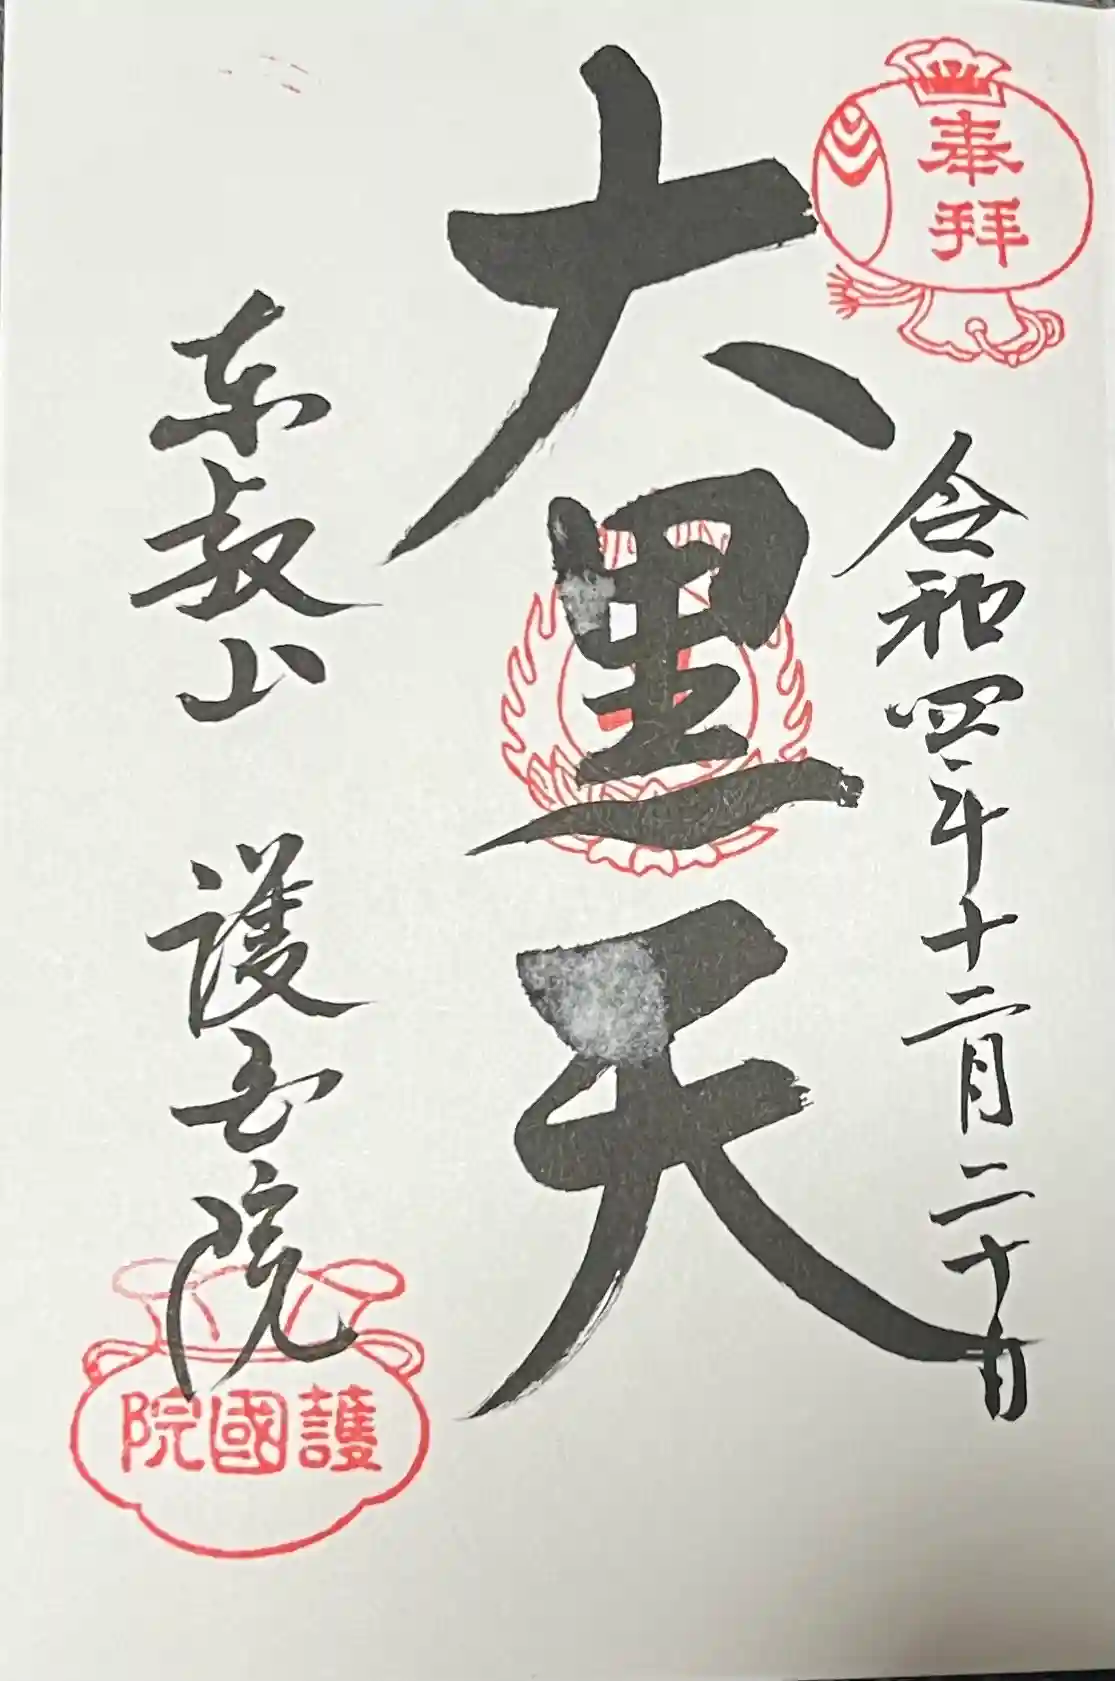 奉拜
令和四年十二月二十日
大黒天
东叡山 護国院
護國院